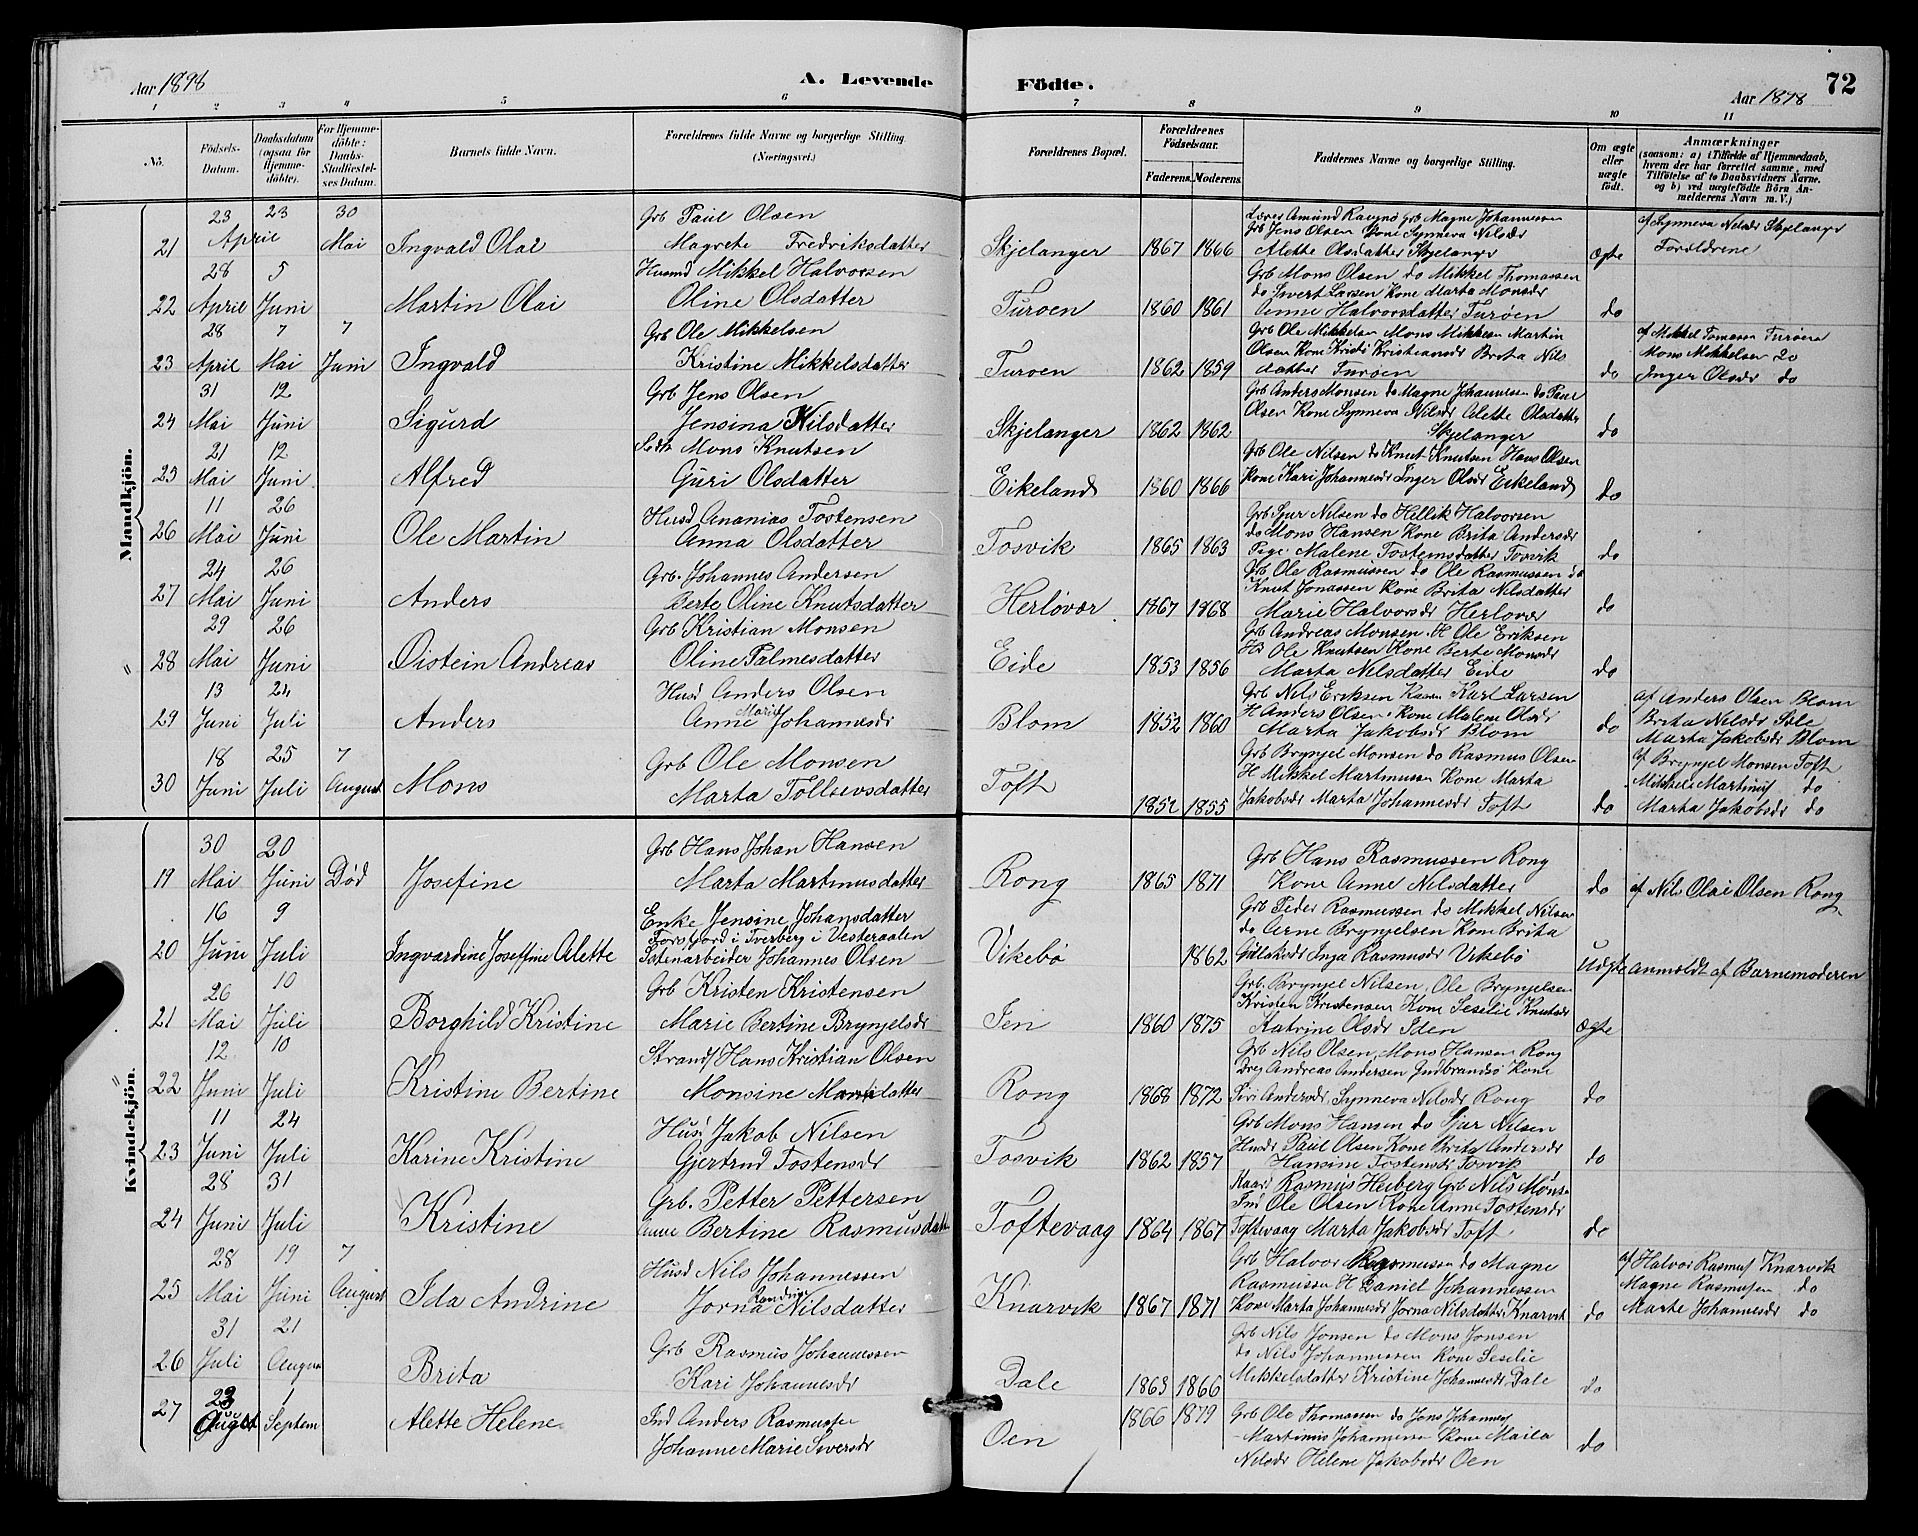 Aar 1898
A. Levende Födte.
Aar 1898
72
1 2 3 4 5 6 7 8 9 10 11
No.
Födsels-Datum.
Daabsdatum (ogsaa for Hjemme-döbte).
For Hjemme-döbte: Daabs-Stadfæstel-ses Datum.
Barnets fulde Navn.
Forældrenes fulde Navne og borgerlige Stilling (Næringsvei.)
Forældrenes Bopæl.
Forældrenes Födselsaar.
Faderens. Moderens.
Faddernes Navne og borgerlige Stilling.
Om ægte eller uægte födt.
Anmærkninger
(saasom: a) i Tilfælde af Hjemmedaab, hvem der har forrettet samme, med Tilföielse af to Daabsvidners Navne. og b) ved uægtefödte Börn An-melderens Navn m. V.)
Mandkjön.
21 23 April 23 30 Mai Ingvald Olai
Grb Paul Olsen
Magrete Fredriksdatter
Skjelanger 1867 1866
Lærer Amund Grb Magne Johannessen
Grb Jens Olsen Kone Synneva Nilsdr
Alette Olsdatter Skjelanger
ægte
af Synneva Nilsdr Skjelanger
Forældrene
22 28 April 5 Juni Martin Olai
Husmd Mikkel Halvorsen
Oline Olsdatter
Turoen 1860 1861
Grb Mons Olsen do Mikkel Thomassen
do Sivert Larsen Kone Marta Monsdr
Anne Halvorsdatter Turøen
do
23 28 April 7 Mai 7 Juni Ingvald
Grb Ole Mikkelsen
Kristine Mikkelsdatter
Turoen 1862 1859
Grb Ole Mikkelsen Mons Mikkelsen Martin
Olsen Kone Kristi Kristiansdr Brita Nils
datter Turøen
do
af Mikkel Tomassen Turøen
Mons Mikkelsen do
Inger Olsdr do
24 31 Mai 12 Juni Sigurd
Grb Jens Olsen
Jensina Nilsdatter
Skjelanger 1862 1862
Grb Anders Monsen do Magne Johannessen do Paul
Olsen Kone Synneva Nilsdr Alette Olsdatter
Skjelanger
do
25 21 Mai 12 Juni Alfred
Mons Knutsen
Guri Olsdatter
Eikeland 1860 1866
Grb Ole Nilsen do Knut Knutsen Hans Olsen
Kone Kari Johannesdr Inger Olsdr Eikeland
do
26 11 Mai 26 Juni Ole Martin
Husd Ananias Tostensen
Anna Olsdatter
Tosvik 1865 1863
Grb Sjur Nilsen do Hellik Halvorsen
do Mons Hansen Kone Brita Andersdr
Pige Malene Tostensdatter Tosvik
do
27 24 Mai 26 Juni Anders
Grb. Johannes Andersen
Berte Oline Knutsdatter
Herløvær 1867 1868
Grb Ole Rasmussen do Ole Rasmussen do
Knut Jonassen Kone Brita Nilsdatter
Marie Halvorsdr Herlovær
do
28 29 Mai 26 Juni Oistein Andreas
Grb Kristian Monsen
Oline Palmesdatter
Eide 1853 1856
Grb Andreas Monsen H Ole Eriksen
Hd Ole Knutsen Kone Berte Monsdr
Marta Nilsdatter Eide
do
29 13 Juni 24 Juli Anders
Husd Anders Olsen
Anne Marie Johannesdr
Blom 1852 1860
Grb Nils Eriksen Karl Larsen
H Anders Olsen Kone Malene Olsdr
Marta Jakobsdr Blom
do
af Anders Olsen Blom
Brita Nilsdr
Marta Jakobsdr Blom
30 18 Juni 25 Juli 7 August Mons
Grb Ole Monsen
Marta Tollsevsdatter
Toft 1852 1855
Grb Brynjel Monsen do Rasmus Olsen
H Mikkel Martinussen Kone Marta
Jakobsdr Marta Johannesdr Toft
do
af Brynjel Monsen Toft
Mikkel Martinus do
Marta Jakobsdr do
Kvindekjön.
19 30 Mai 20 Juni Død Josefine
Grb Hans Johan Hansen
Marta Martinusdatter
Rong 1865 1871
Grb Hans Rasmussen Rong
Kone Anne Nilsdatter
do
af Nils Olai Olsen Rong
20 16 Juni 9 Juli Ingvardine Joseffine Alette
Enke Jensine Johansdatter
Forsgord i Tverberg i Vesteraalen
Stenarbeider Johannes Olsen
Vikebø 1862
Grb Peder Rasmussen do Mikkel Nilsen
do Arne Brynjelsen Kone Brita
Gullaksdr Inga Rasmusdr Vikebø
Udgte
anmeldt af Barnemoderen
21 26 Mai 10 Juli Borghild Kristine
Grb Kristen Kristensen
Marie Bertine Brynjelsdr
1860 1875
Grb. Brynjel Nilsen, Ole Brynjelsen
Kristen Kristensen Kone Seselie Knutsdr
Katrine Olsdr Iden
ægte
22 12 Juni 10 Juli Kristine Bertine
Strands Hans Kristian Olsen
Monsine
Rong 1868 1872
Grb Nils Olsen, Mons Hansen Rong
Dreg Andreas Andersen Kone
Siri Andersdr Synneva Nilsdr Rong
do
23 11 Juni 24 Juli Karine Kristine
Husd Jakob Nilsen
Gjertrud Tostensdr
Tosvik 1862 1857
Grb Mons Hansen do Sjur Nilsen
Husdr Paul Olsen Kone Brita Andersdr
Hansine Tostensdr Tosvik
do
24 28 Juni 31 Juli Kristine
Grb. Petter Pettersen
Bertine Rasmusdatter
Toftevaag 1864 1867
Rasmus Heiberg Grb Nils Monsen
Ind Ole Olsen Kone Anne Tostensdr
Toftevaag Marta Jakobsdr Toft
do
25 28 Mai 19 Juni 7 August Ida Andrine
Husd Nils Johannessen
Jorna Nilsdatter
Knarvik 1867 1871
Grb Halvor Rasmussen do Magne
Rasmussen H Daniel Johannessen
Kone Marta Johannesdr Jorna Nilsdatter Knarvik
do
af Halvor Rasmus Knarvik
Magne Rasmussen do
Marte Johannesdr do
26 31 Juli 21 August Brita
Grb Rasmus Johannessen
Kari Johannesdr
Dale 1863 1866
Grb Nils Jonsen do Mons Jonsen
do Nils Johannessen Kone Seselie
Mikkelsdatter Kristine Johannesdr Dale
do
27 23 August 1 Septem Alette Helene
Ind Anders Rasmussen
Johanne Marie Siversdr
Oen 1866 1879
Grb Ole Thomassen do Jens Johannes
Martinus Johannessen Kone
Nilsdr Helene Jakobsdr Oen
do